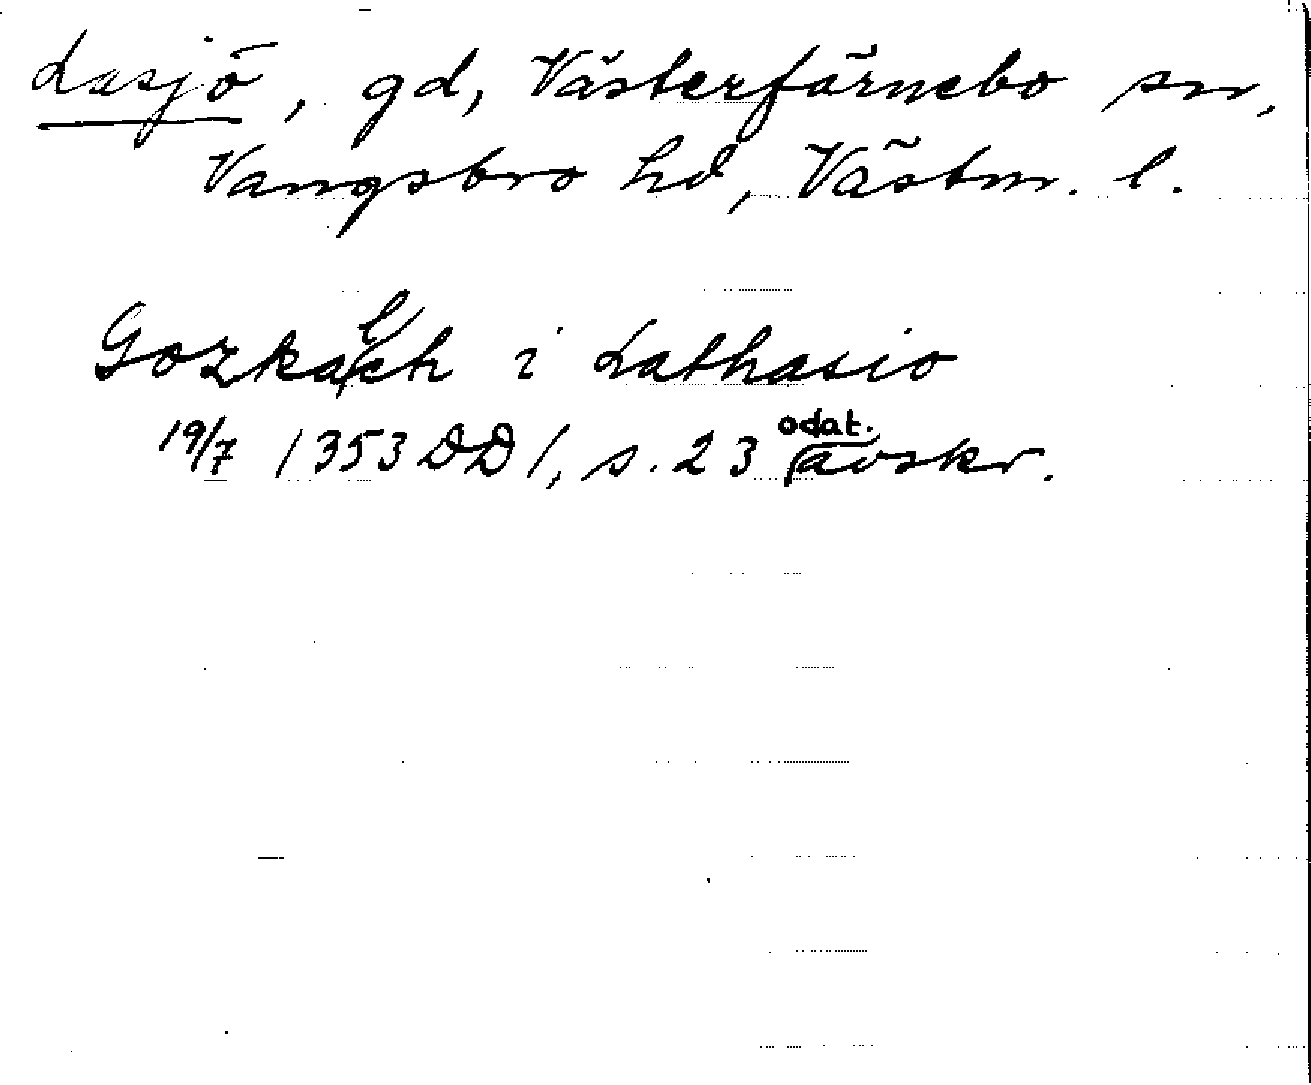 Lasjö, gd, Västerfärnebo sn,
Vangsbro hd, Västm. l.
Gozkalch i Lathasio
19/7 1353 DD 1, s. 23 odat. avskr.